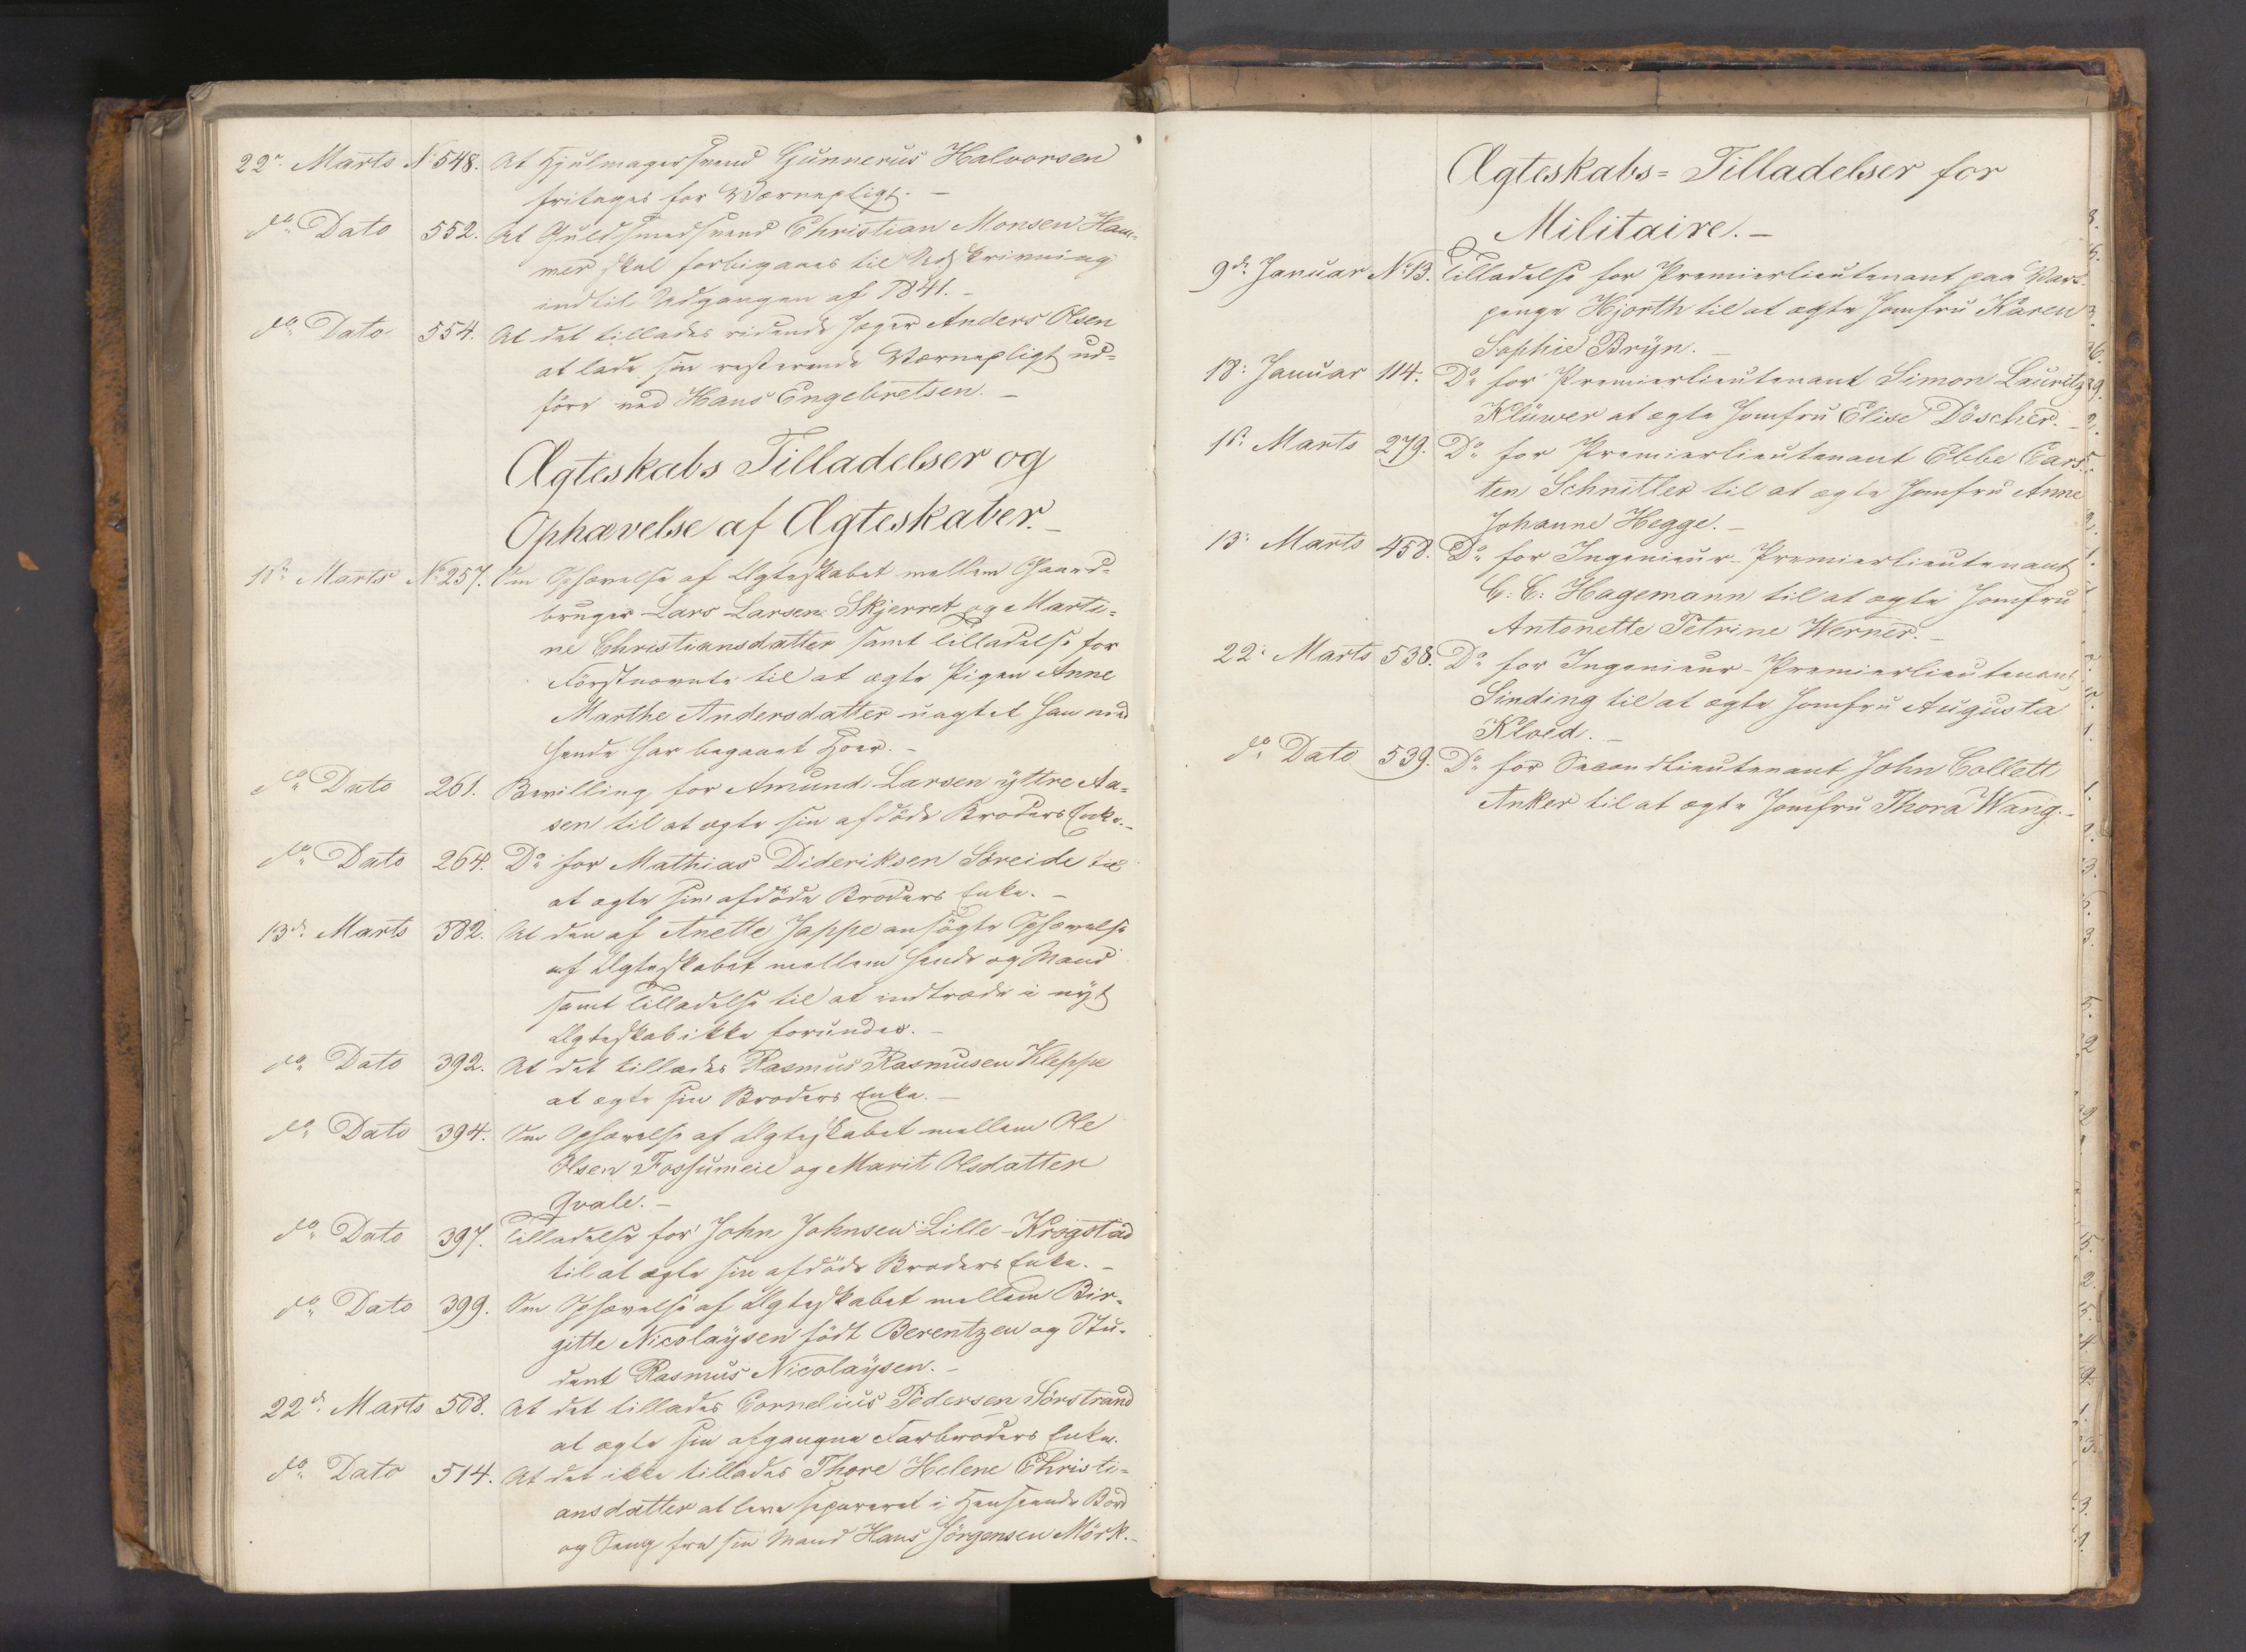 22de Marts No 548. At Hjulmagersvend Gunnerus Halvorsen
fritages for Værnepligt. —
do Dato 552. At Guldsmedsvend Christian Monsen Ham=
mer skal forbigaaes til Udskrivning
indtil Udgangen af 1841. —
do Dato 554. At det tillades ridende Jæger Anders Olsen
at lade sin resterende Værnepligt ud=
føre ved Hans Engebretsen. —
Ægteskabs Tilladelser og
Ophævelse af Ægteskaber. —
1ste Marts No 257. Om Ophævelse af Ægteskabet mellem Gaard=
bruger Lars Larsen Skjerret og Marti=
ne Christiansdatter samt Tilladelse for
Førstnævnte til at ægte Pigen Anne
Marthe Andersdatter uagtet han med
hende har begaaet Hoer. —
do Dato 261. Bevilling for Amund Larsen yttre Aa=
sen til at ægte sin afdøde Broders Enke. —
do Dato 264. Do for Mathias Dideriksen Søreide til
at ægte sin afdøde Broders Enke. —
13de Marts 382. At den af Anette Jappe ansøgte Ophævelse
af Ægteskabet mellem hende og Mand
samt Tilladelse til at indtræde i nyt
Ægteskab ikke forundes. —
do Dato 392. At det tillades Rasmus Rasmusen Kleppe
at ægte sin Broders Enke. —
do Dato 394. Om Ophævelse af Ægteskabet mellem Ole
Olsen Fossumeie og Marit Olsdatter
Qvale. —
do Dato 397. Tilladelse for John Johnsen Lille-Krogstad
til at ægte sin afdøde Broders Enke. —
do Dato 399. Om Ophævelse af Ægteskabet mellem Bir=
gitte Nicolaysen født Berentzen og Stu=
dent Rasmus Nicolaysen. —
22de Marts 508. At det tillades Cornelius Pedersen Sørstrand
at ægte sin afgangne Farbroders Enke.
do Dato 514. At det ikke tillades Thore Helene Christi=
ansdatter at leve separeret i Henseende Bord
og Seng fra sin Mand Hans Jørgensen Mörk. —
Ægteskabs=Tilladelser for
Militaire. —
9de Januar No 13. Tilladelse for Premierlieutenant paa Vart=
penge Hjorth til at ægte Jomfru Karen
Sophie Bryn. —
18: Januar 114. Do for Premierlieutenant Simon Lauritz
Klüwer at ægte Jomfru Elise Döscher. —
1ste Marts 279. Do for Premierlieutenant Ebbe Cars=
ten Schnitler til at ægte Jomfru Anne
Johanne Hegge. —
13: Marts 458. Do for Ingenieur-Premierlieutenant
C: C: Hagemann til at ægte Jomfru
Antonette Petrine Werner. —
22: Marts 538. Do for Ingenieur-Premierlieutenant
Sinding til at ægte Jomfru Augusta
Kloed. —
do Dato 539. Do for Secondlieutenant John Collett
Anker til at ægte Jomfru Thora Wang. —